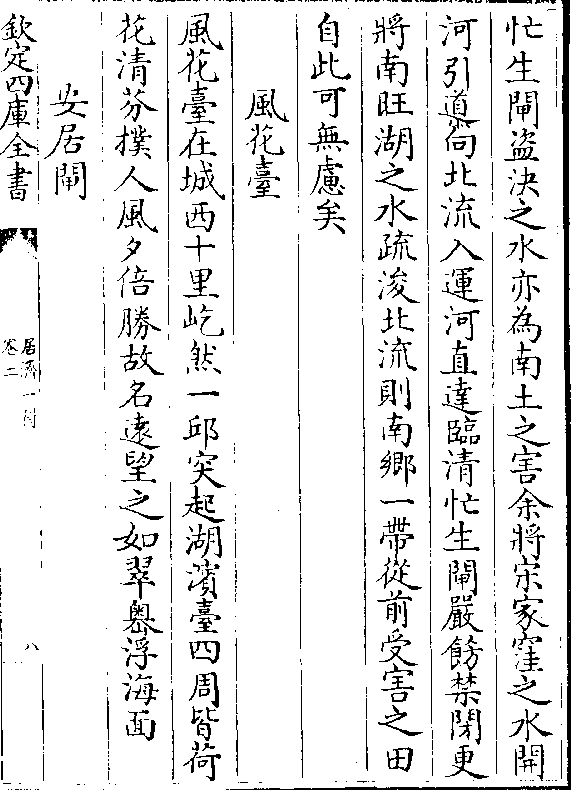 忙生閘盜決之水亦為南土之害余將宋家窪之水開
河引道向北流入運河直達臨清忙生閘嚴飭禁閉更
將南旺湖之水疏浚北流則南鄉一帶從前受害之田
自此可無慮矣
風花臺
風花臺在城西十里屹然一邱突起湖濱臺四周皆荷
花清芬撲人風夕倍勝故名遠望之如翠嶴浮海面
安居閘
欽定四庫全書
居濟一得
卷二
八